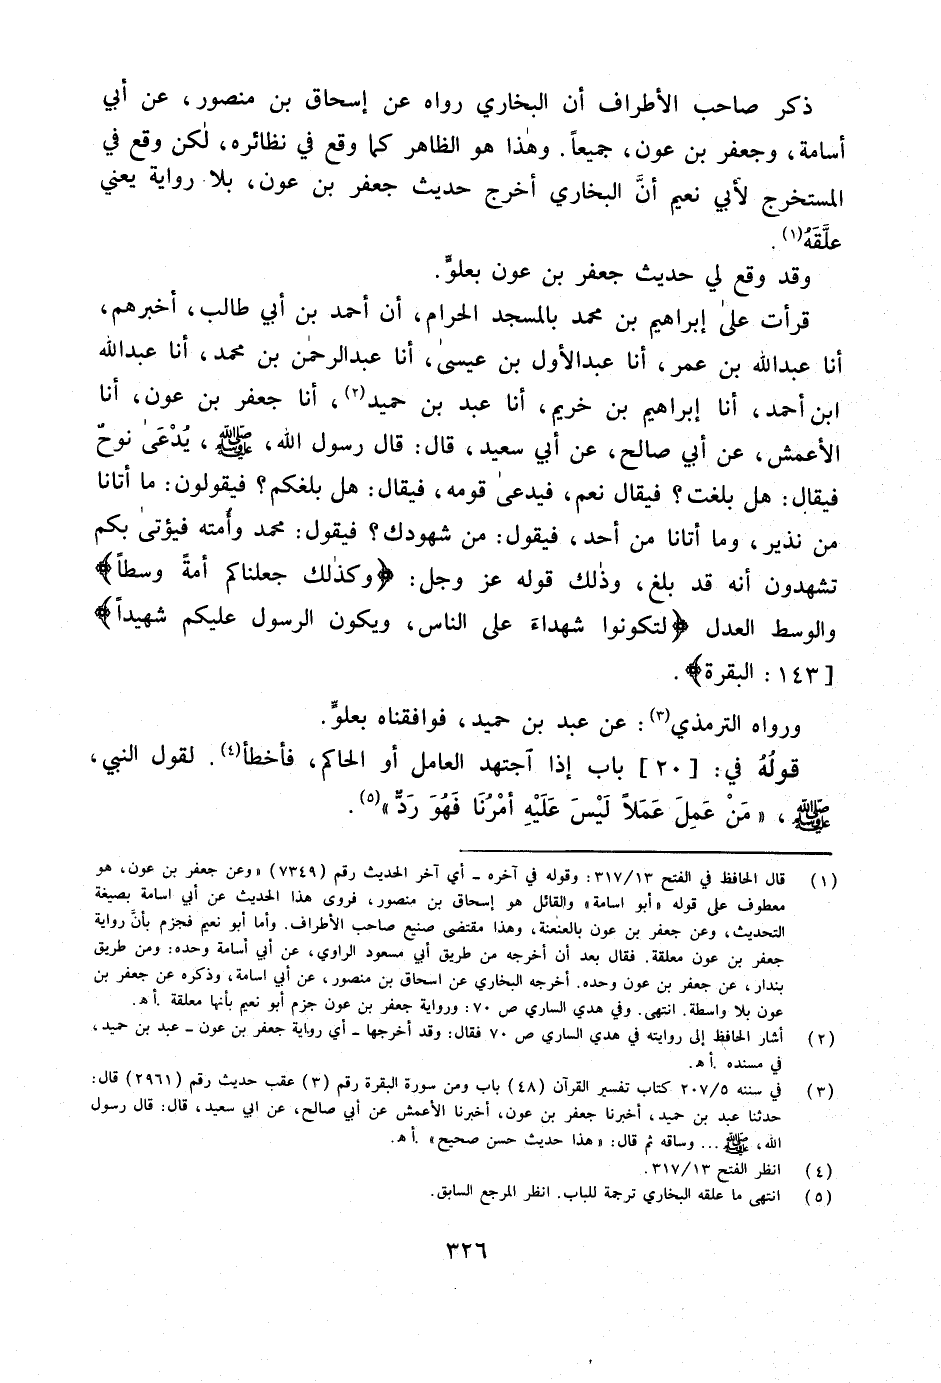 ذكر صاحب الأطراف أن البخاري رواه عن إسحاق بن منصور، عن أبي
أسامة، وجعفر بن عون، جميعاً. وهٰذا هو الظاهر كما وقع في نظائره، لٰكن وقع في
المستخرج لأبي نعيم أنَّ البخاري أخرج حديث جعفر بن عون، بلا رواية يعني
علَّقَهُ(١).
وقد وقع لي حديث جعفر بن عون بعلوٍّ.
قرأت علىٰ إبراهيم بن محمد بالمسجد الحرام، أن أحمد بن أبي طالب، أخبرهم،
أنا عبدالله بن عمر، أنا عبدالأول بن عيسىٰ، أنا عبدالرحمٰن بن محمد، أنا عبدالله
ابن أحمد، أنا إبراهيم بن خريم، أنا عبد بن حميد(٢)، أنا جعفر بن عون، أنا
الأعمش، عن أبي صالح، عن أبي سعيد، قال: قال رسول الله، ﷺ، يُدْعَىٰ نوحٌ
فيقال: هل بلغت؟ فيقال نعم، فيدعىٰ قومه، فيقال: هل بلغكم؟ فيقولون: ما أتانا
من نذير، وما أتانا من أحد، فيقول: من شهودك؟ فيقول: محمد وأُمته فيؤتىٰ بكم
تشهدون أنه قد بلغ، وذٰلك قوله عز وجل: ﴿وكذٰلك جعلناكم أمةً وسطاً﴾
والوسط العدل ﴿لتكونوا شهداءَ على الناس، ويكون الرسول عليكم شهيداً﴾
[١٤٣: البقرة﴾.
ورواه الترمذي(٣): عن عبد بن حميد، فوافقناه بعلوٍّ.
قولُهُ في: [٢٠] باب إذا آجتهد العامل أو الحاكم، فأخطأ(٤). لقول النبي،
ﷺ، «مَنْ عَمِلَ عَمَلاً لَيْسَ عَلَيْهِ أمْرُنَا فَهُوَ رَدٌّ»(٥).
(١) قال الحافظ في الفتح ٣١٧/١٣: وقوله في آخره ـ أي آخر الحديث رقم (٧٣٤٩) «وعن جعفر بن عون، هو
معطوف على قوله «أبو اسامة» والقائل هو إسحاق بن منصور، فروى هذا الحديث عن أبي اسامة بصيغة
التحديث، وعن جعفر بن عون بالعنعنة، وهذا مقتضى صنيع صاحب الأطراف. وأما أبو نعيم فجزم بأنَّ رواية
جعفر بن عون معلقة. فقال بعد أن أخرجه من طريق أبي مسعود الراوي، عن أبي أسامة وحده: ومن طريق
بندار، عن جعفر بن عون وحده. أخرجه البخاري عن اسحاق بن منصور، عن أبي اسامة، وذكره عن جعفر بن
عون بلا واسطة. انتهى. وفي هدي الساري ص ٧٠: ورواية جعفر بن عون جزم أبو نعيم بأنها معلقة .أ هـ.
(٢) أشار الحافظ إلى روايته في هدي الساري ص ٧٠ فقال: وقد أخرجها ـ أي رواية جعفر بن عون ـ عبد بن حميد،
في مسنده .أ هـ.
(٣) في سننه ٢٠٧/٥ كتاب تفسير القرآن (٤٨) باب ومن سورة البقرة رقم (٣) عقب حديث رقم (٢٩٦١) قال:
حدثنا عبد بن حميد، أخبرنا جعفر بن عون، أخبرنا الأعمش عن أبي صالح، عن ابي سعيد، قال: قال رسول
الله، ﷺ... وساقه ثم قال: «هذا حديث حسن صحيح» .أ هـ.
(٤) انظر الفتح ٣١٧/١٣.
(٥) انتهى ما علقه البخاري ترجمة للباب. انظر المرجع السابق.
٣٢٦